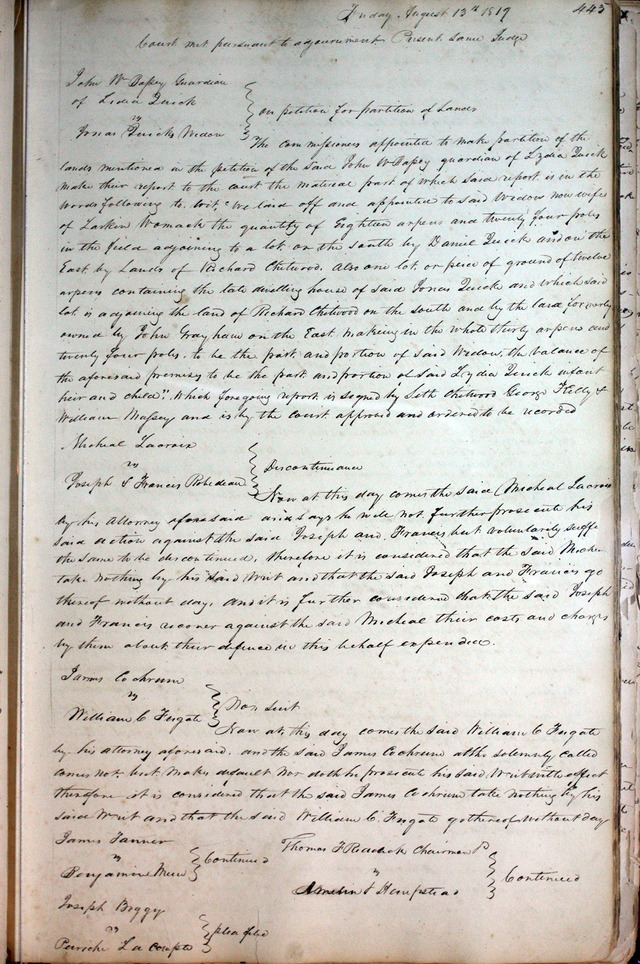 Friday August 13th 1819 445
Court met pursuant to adjournment Present same Judge
John W Bapey Guardian
of Lidia Quick
vs
Jonas Quicks Widow
on petition for partition of Lands
The commissioners appointed to make partition of the
lands mentioned in the petition of the said John W Bapey guardian of Lydia Quick
make their report to the court the material part of which said report is in the
words following to wit, "We laid off and appointed to said Widow now wife
of Larkin Womack the quantity of Eighteen arpens and twenty four poles
in the field adjoining to a lot on the south by Daniel Quick and on the
East by Lands of Richard Chitwood. Also one lot or peice of ground of twelve
arpens containing the late dwelling house of said Jonas Quick and which said
lot is adjoining the land of Richard Chitwood on the south and by the land formerly
owned by John Grayham on the East making in the whole thirty arpens and
twenty four poles to be the part and portion of said Widow, the balance of
the aforesaid premises to be the part and portion of said Lydia Quick infant
heir and child." Which foregoing report is signed by Seth Chitwood George Kelly &
William Massey and is by the court approved and ordered to be recorded
Micheal Lacroix
vs
Joseph & Francis Robedeau
Discontinuance
Now at this day comes the said Micheal Lacroix
by his Attorney aforesaid and says he will not further prosecute his
said action against the said Joseph and Francis but voluntarily suffe
the same to be discontinued, therefore it is considered that the said Miche
take nothing by his said writ and that the said Joseph and Francis go
thereof without day, and it is further considered that the said Joseph
and Francis recover against the said Micheal their costs and charges
by them about their defence in this behalf expended.
James Cochrum
vs
William C Fugate
Non Suit
Now at this day comes the said William C Fugate
by his attorney aforesaid. and the said James Cochrum altho solemnly called
comes not but makes default nor doth he prosecute his said Writ with effect
therefore it is considered that the said James Cochrum take nothing by his
said Writ and that the said William C. Fugate go thereof without day
James Tanner
vs
Benjamin
Continued
Thomas F Chairman
vs
Hempstead
Continued
Joseph Boggy
vs
La Compte
plea filed